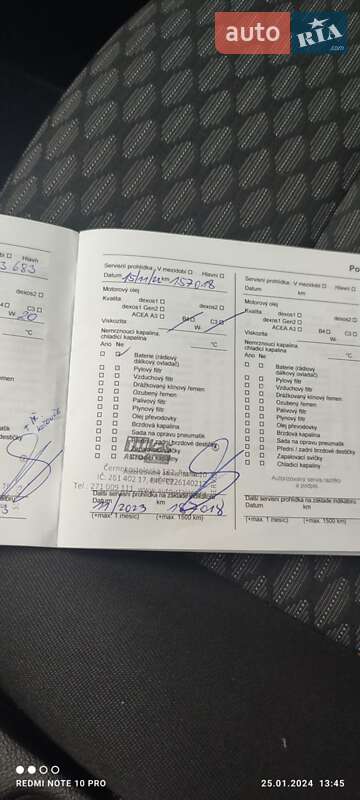 auto RIA .com
Hlavní
3 683
dexos2
C3
W- 20
°C
Servisní prohlídka: V mezidobí Hlavní
Datum 15/11/22 km 157018
Motorový olej
Kvalita dexos1 dexos2
dexos1 Gen2
ACEA A3 B4 C3
Viskozita W-
Nemrznoucí kapalina, °C
chladicí kapalina
Ano Ne
Baterie (rádiový
dálkový ovladač)
Pylový filtr
Vzduchový filtr
Drážkovaný klínový řemen
Ozubený řemen
Palivový filtr
Plynový filtr
Olej převodovky
Brzdová kapalina
Sada na opravu pneumatik
Tel.: 271 009 111
Další servisní prohlídka na základě indikátoru
Datum km
11/2023
(+max. 1 měsíc) (+max. 1500 km)
Servisní prohlídka: V mezidobí Hlavní
Datum km
Motorový olej
Kvalita dexos1 dexos2
dexos1 Gen2
ACEA A3 B4 C3
Viskozita W-
Nemrznoucí kapalina, °C
chladicí kapalina
Ano Ne
Baterie (rádiový
dálkový ovladač)
Pylový filtr
Vzduchový filtr
Drážkovaný klínový řemen
Ozubený řemen
Palivový filtr
Plynový filtr
Olej převodovky
Brzdová kapalina
Sada na opravu pneumatik
Přední / zadní brzdové destičky
Zapalovací svíčky
Chladicí kapaliny
Autorizovaný servis, razítko
a podpis
Další servisní prohlídka na základě indikátoru
Datum km
(+max. 1 měsíc) (+max. 1500 km)
REDMI NOTE 10 PRO
25.01.2024 13:45